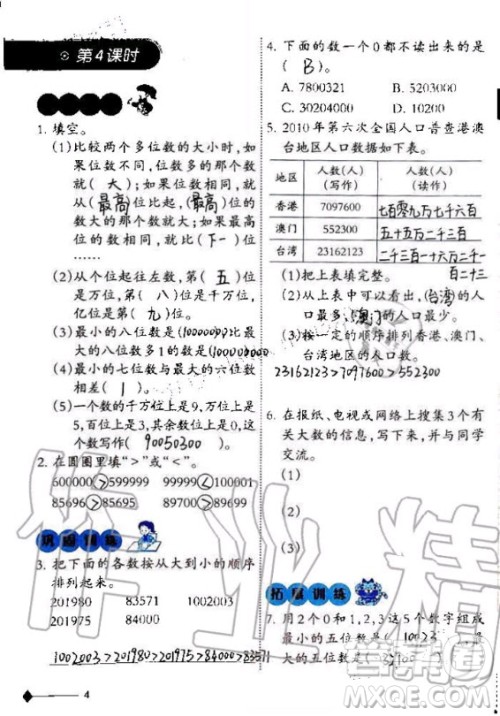 第4课时
1. 填空。
(1)比较两个多位数的大小时,如
果位数不同,位数多的那个数
就(大);如果位数相同,就
从(最高)位比起,(最高)位的
数大的那个数就大。如果最高
位的数相同,就比(下一)位
……
(2)从个位起往左数,第(五)
位是万位,第(八)位是千万位,
亿位是第(九)位。
(3)最小的八位数(10000000)比
最大的八位数多1的数是(
(4)最小的七位数与最大的六位数
相差(1)
(5)一个数的千万位上是9,万位上是
5,百位上是3,其余各位都是0,这
个数写作(90050300)
2. 在圆圈里填“>”或“<”。
600000>599999 99999<100001
86965>85695 89700>89699
巩固训练
3. 把下面的各数按从大到小的顺序
排列起来。
201980 83571 1002003
201975 84000
1002003>201980>201975>84000>83571
4
4. 下面的数一个0都不读出来的是
(B)。
A. 7800321 B. 5203400
C. 30204000 D. 10200
5. 2010年第六次全国人口普查港澳
台地区人口数据如下表。
地区 人数(人)(写作) 人数(人)(读作)
香港 7097600 七百零九万七千六百
澳门 552300 五十五万二千三百
台湾 23162123 二千三百一十六万二千一百二十三
(1)把上表填完整。
(2)从上表中可以看出,(台湾)的人
口最多,(澳门)的人口最少。
(3)按一定的顺序排列香港、澳门、
台湾地区的人口数。
23162123>7097600>552300
6. 在报纸、电视或网络上搜集3个有
关大数的信息,写下来,并与同学
交流。
(1)
(2)
(3)
拓展训练
7. 用2个0和1,2,3这5个数字组成
最小的五位数是(10023
大的五位数是(
作业精灵
MXQE.COM